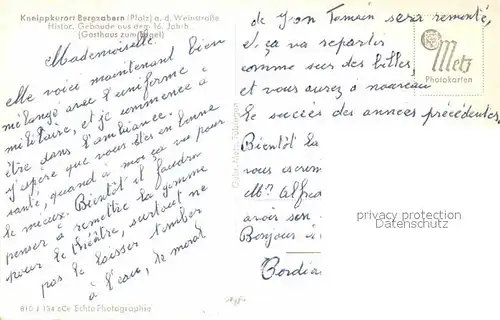 Kneippkurort Bergzabern (Pfalz) a. d. Weinstraße
Histor. Gebäude aus dem 16. Jahrh.
(Gasthaus zum Engel)
Mademoiselle.
Me voici maintenant bien
mélangé avec l'uniforme
militaire, et je commence à
être dans l'ambiance.
J'espère que vous êtes en bonne
santé, quand à moi ça va pour
le mieux. Bientôt il faudra
penser à remettre la gomme
pour le théâtre, surtout ne
pas le laisser tomber
à l'eau, le moral
810 J 134 cCe Echte Photographie
de Yvon sera remonté,
et ça va repartir
comme sur des billes,
et vous aurez à nouveau
le succès des années précédentes.
Bientôt la
vous
Mr Alfre
avoir
Bonjour
Cordia
Metz
Photokarten
Gebr. Metz, Tübingen
privacy protection
DatenschutzRahmen